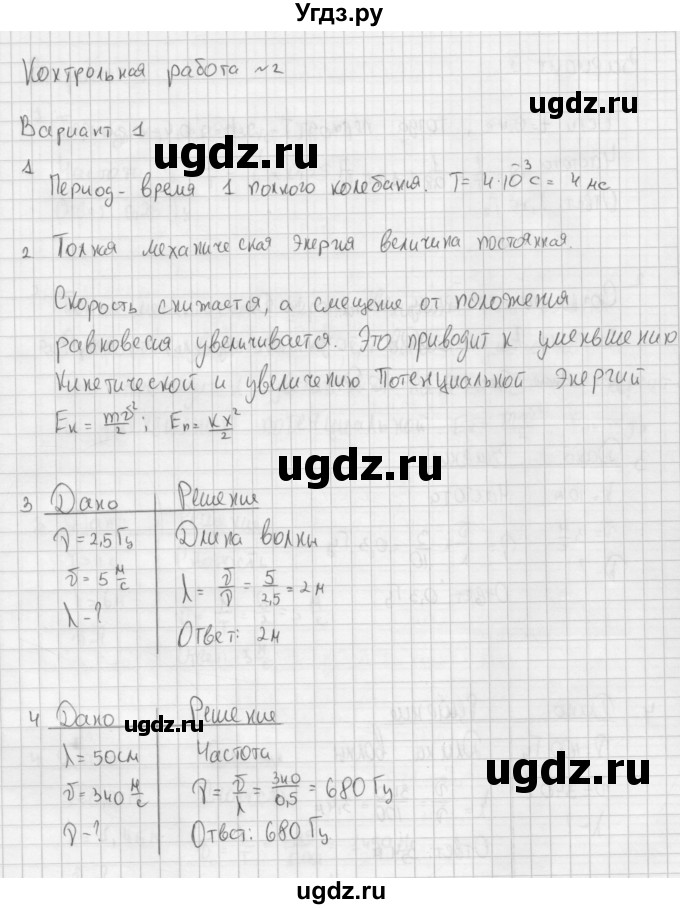 Угдз.ру
Контрольная работа №2
Вариант 1
ugdz.ru
1
Период - время 1 полного колебания. T = 4·10⁻³ с = 4 мс
2 Полная механическая энергия величина постоянная.
Скорость снижается, а смещение от положения
равновесия увеличивается. Это приводит к уменьшению
кинетической и увеличению потенциальной энергий
Eк = mv²/2; Eп = kx²/2
ugdz.ru
3 Дано Решение
ν = 2,5 Гц Длина волны
v = 5 м/с λ = v/ν = 5/2,5 = 2 м
λ - ?
Ответ: 2м
4 Дано Решение
ugdz.ru
λ = 50см Частота
v = 340 м/с ν = v/λ = 340/0,5 = 680 Гц
ugdz.ru
ν - ? Ответ: 680 Гц
ugdz.ru